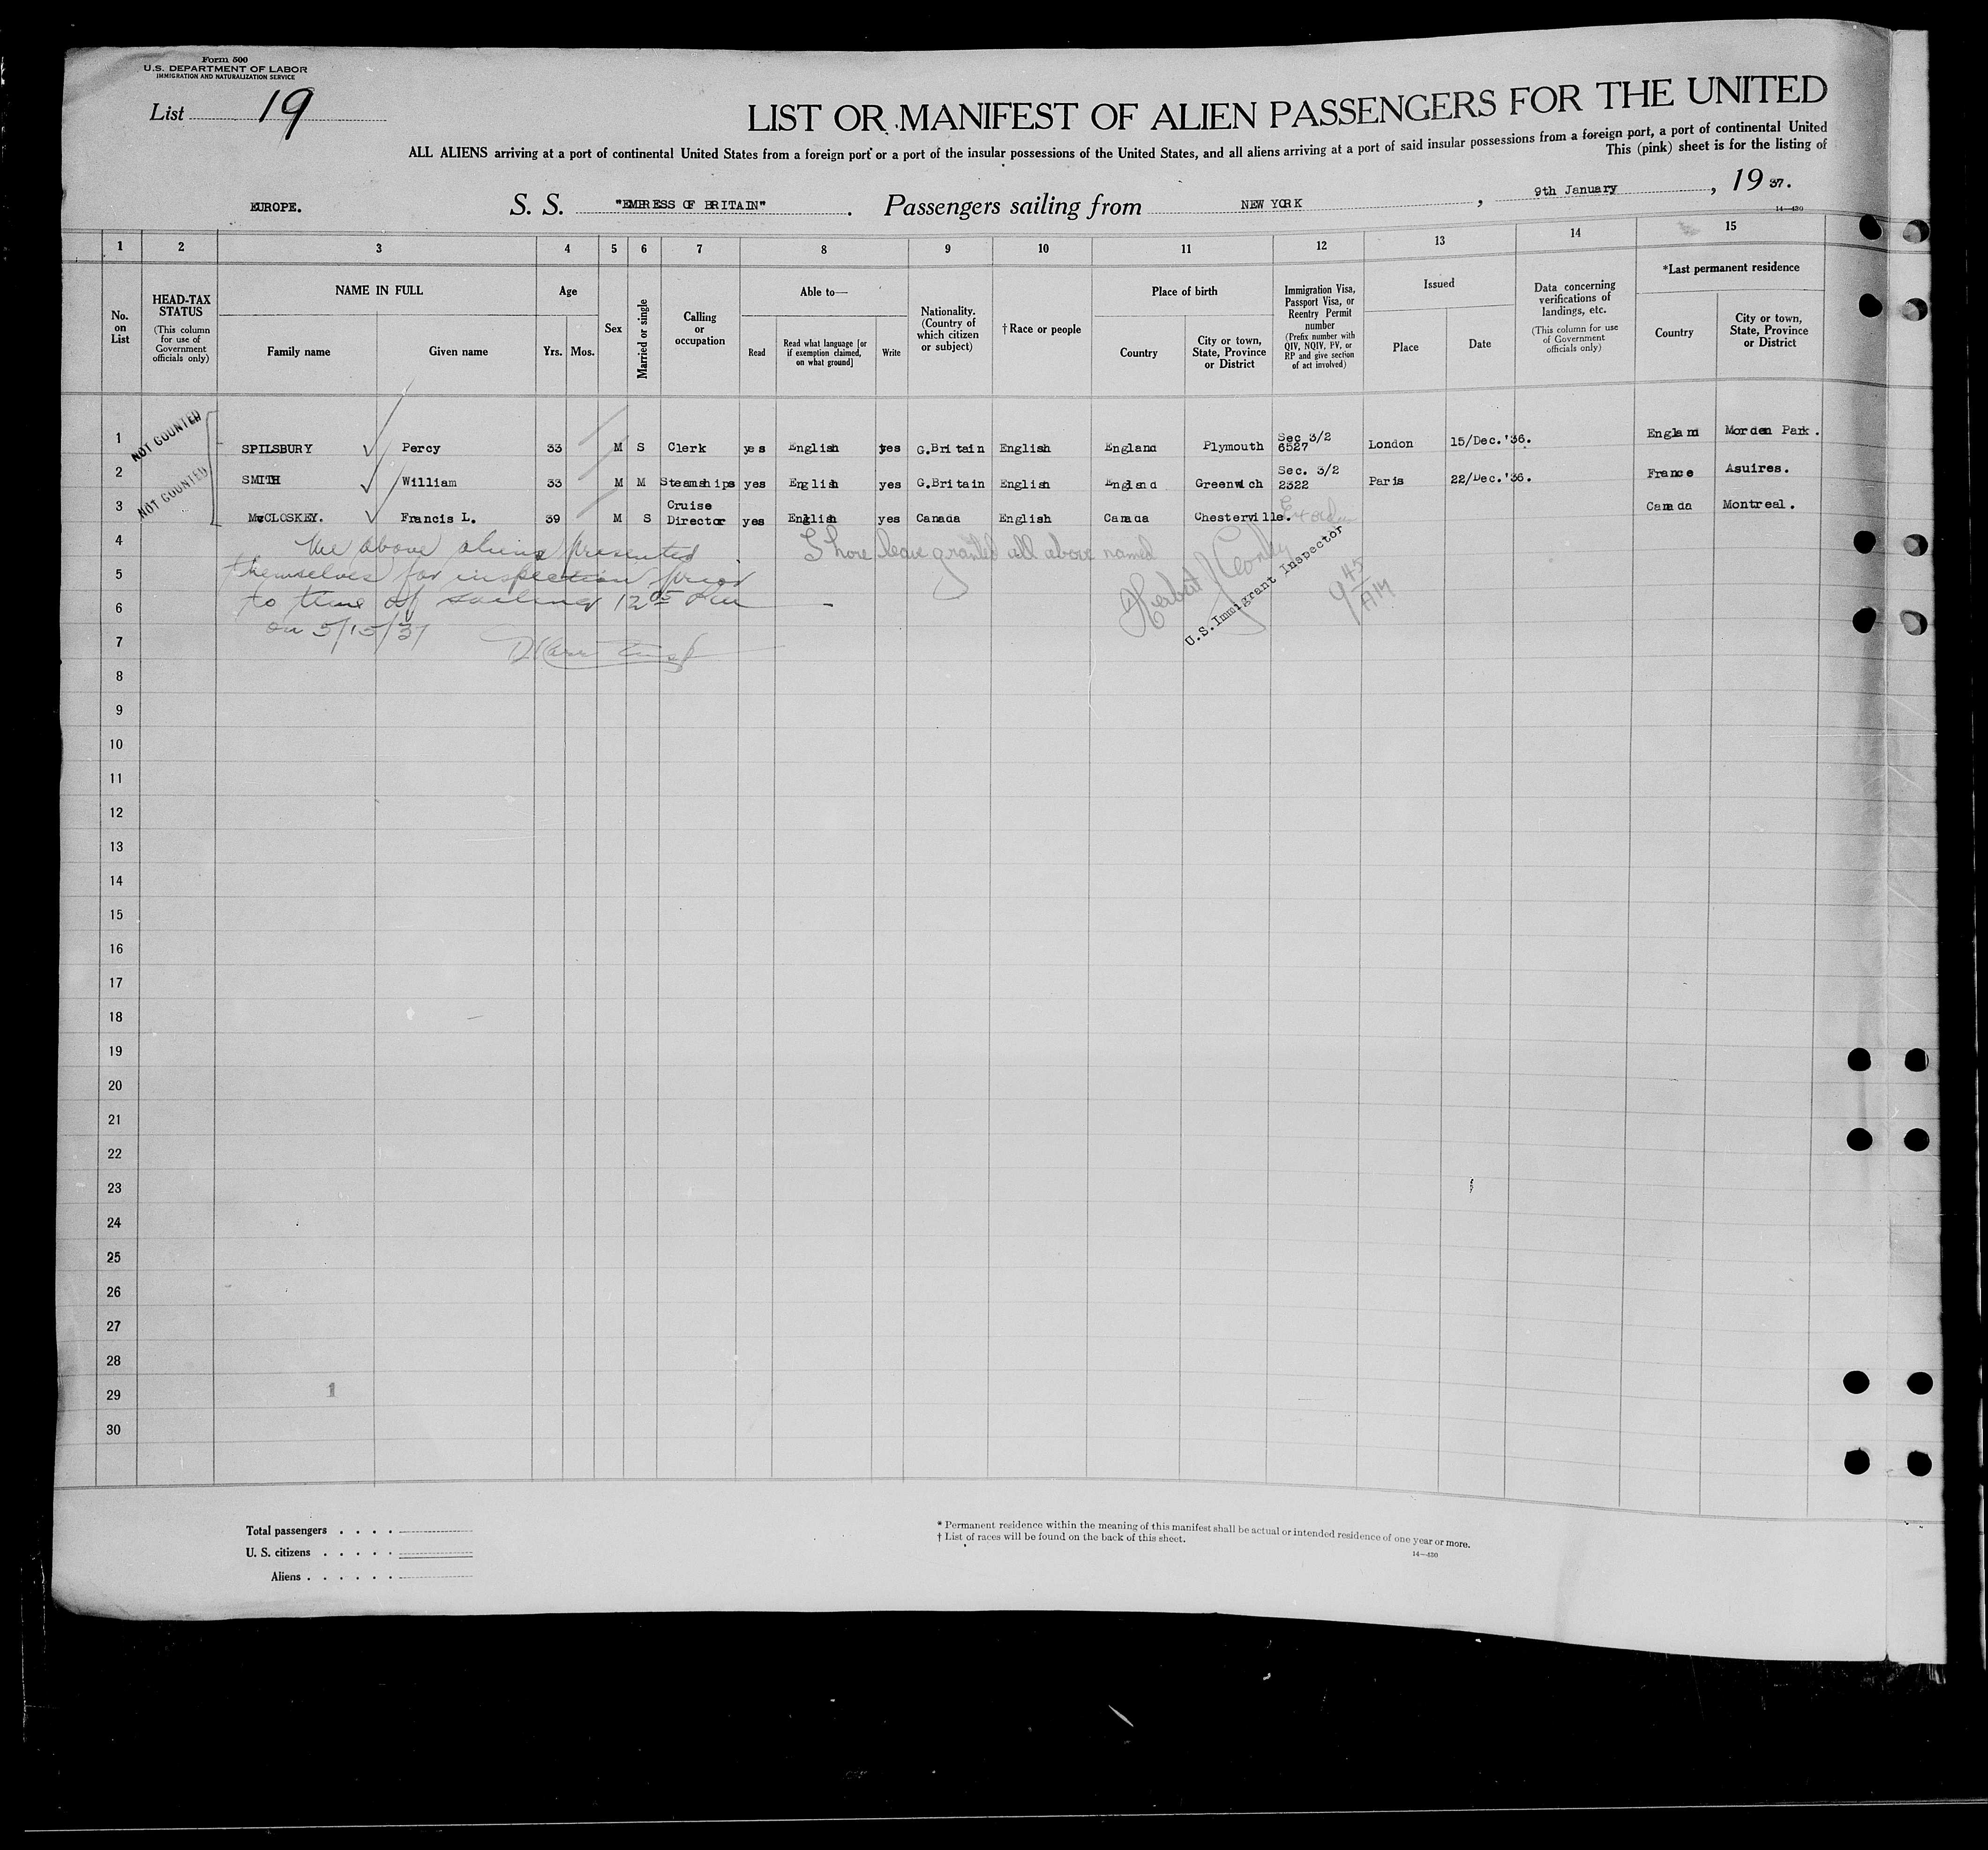 Form 500
U.S. DEPARTMENT OF LABOR
IMMIGRATION AND NATURALIZATION SERVICE
List 19
LIST OR MANIFEST OF ALIEN PASSENGERS FOR THE UNITED
ALL ALIENS arriving at a port of continental United States from a foreign port or a port of the insular possessions of the United States, and all aliens arriving at a port of said insular possessions from a foreign port, a port of continental United
This (pink) sheet is for the listing of
EUROPE. S. S. "EMPRESS OF BRITAIN". Passengers sailing from NEW YORK, 9th January, 19 37.
14—430
1 2 3 4 5 6 7 8 9 10 11 12 13 14 15
No. on List
HEAD-TAX STATUS (This column for use of Government officials only)
NAME IN FULL
Family name
Given name
Age
Yrs. Mos.
Sex
Married or single
Calling or occupation
Able to—
Read
Read what language [or if exemption claimed, on what ground]
Write
Nationality. (Country of which citizen or subject)
†Race or people
Place of birth
Country
City or town, State, Province or District
Immigration Visa, Passport Visa, or Reentry Permit number (Prefix number with QIV, NQIV, PV, or RP and give section of act involved)
Issued
Place
Date
Data concerning verifications of landings, etc. (This column for use of Government officials only)
*Last permanent residence
Country
City or town, State, Province or District
NOT COUNTED
1 SPILSBURY Percy 33 M S Clerk yes English yes G.Britain English England Plymouth Sec 3/2 6527 London 15/Dec.'36. England Morden Park.
NOT COUNTED
2 SMITH William 33 M M Steamships yes English yes G.Britain English England Greenwich Sec. 3/2 2322 Paris 22/Dec.'36. France Asuires.
3 McCLOSKEY. Francis L. 39 M S Cruise Director yes English yes Canada English Canada Chesterville. Canada Montreal.
4 The above aliens presented
Shore leave granted all above named
5 themselves for inspection prior
6 to time of sailing 12 05
on
Herbert
U.S. Immigrant Inspector
9 45 AM
7
8
9
10
11
12
13
14
15
16
17
18
19
20
21
22
23
24
25
26
27
28
29 1
30
Total passengers . . . .
U. S. citizens . . . . .
Aliens . . . . . .
* Permanent residence within the meaning of this manifest shall be actual or intended residence of one year or more.
† List of races will be found on the back of this sheet.
14—430